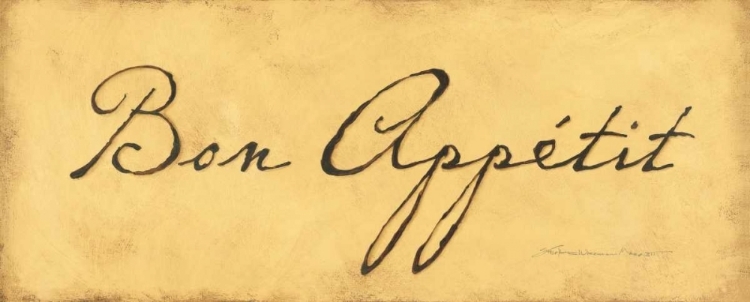 Bon Appétit